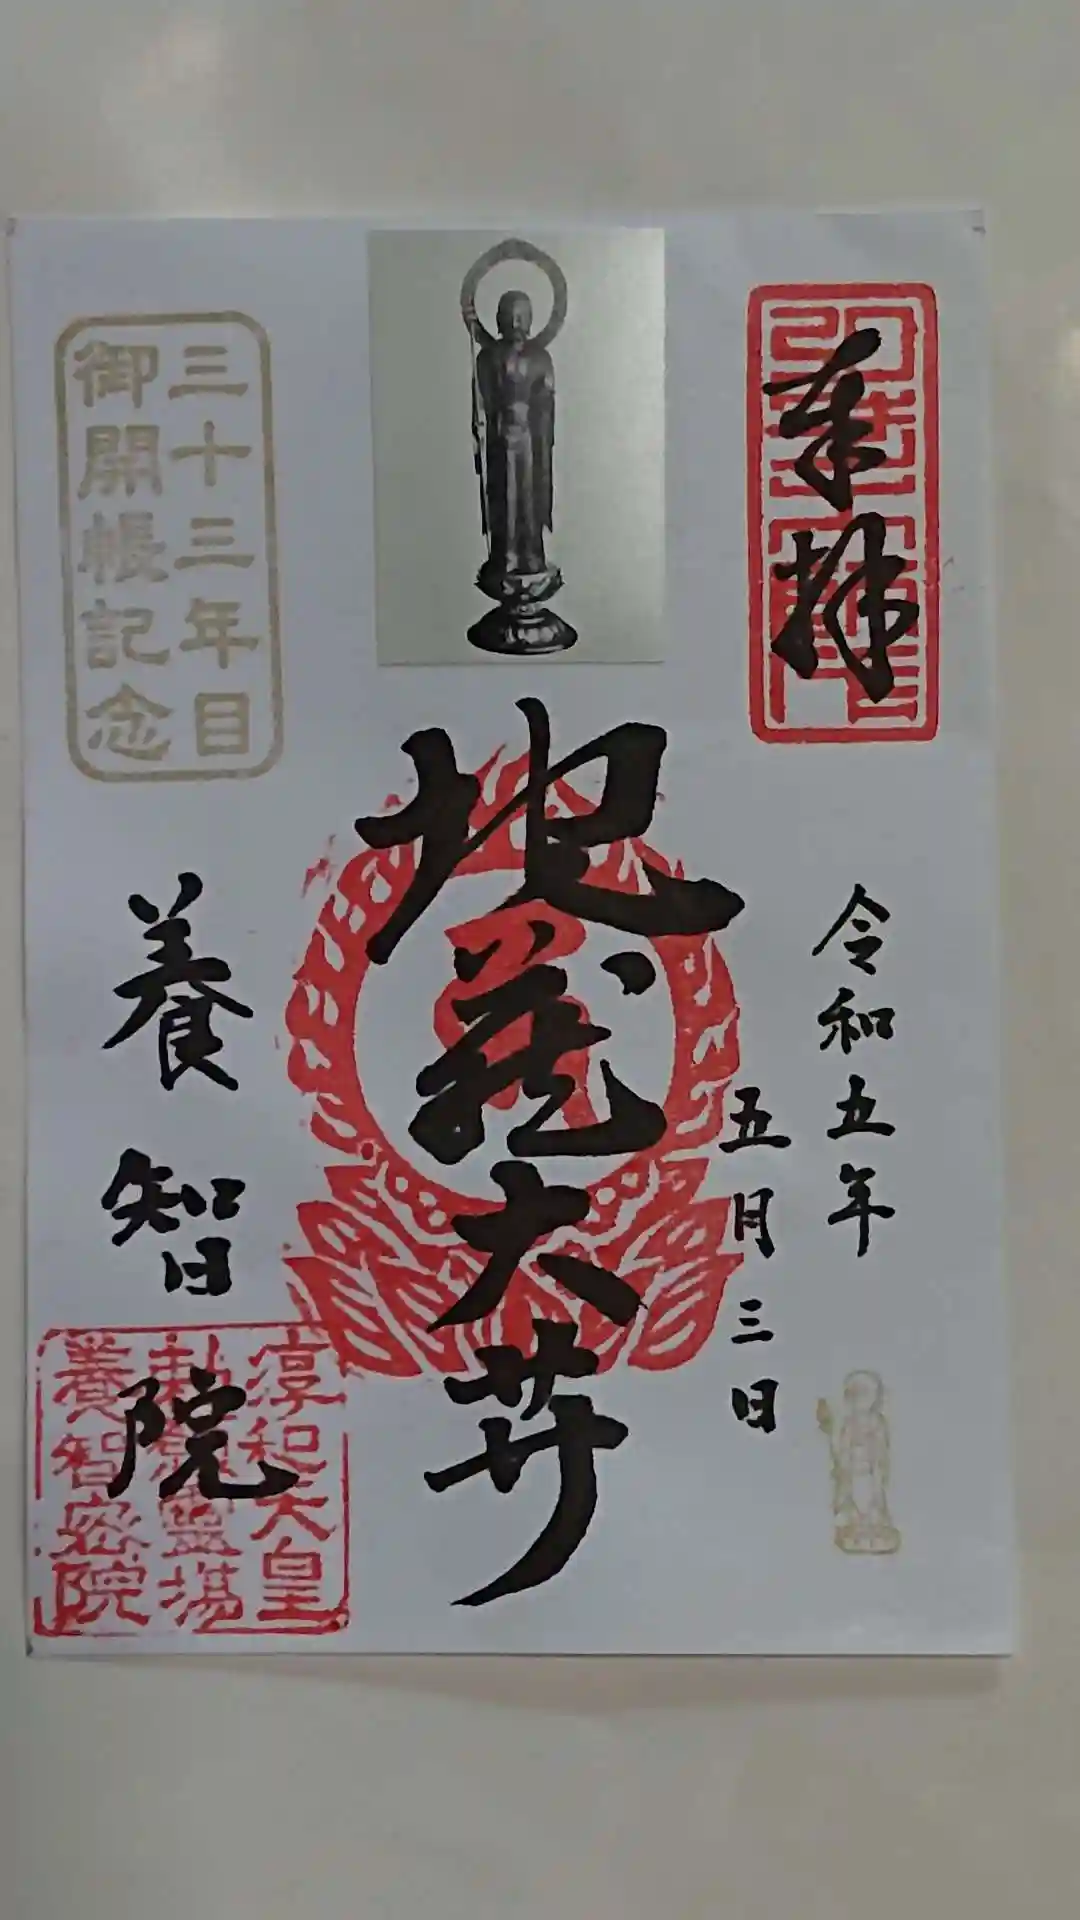 奉拝
令和五年
五月三日
地蔵大井
三十三年目
御開帳記念
養智院
淳和天皇
勅願霊場
養智密院